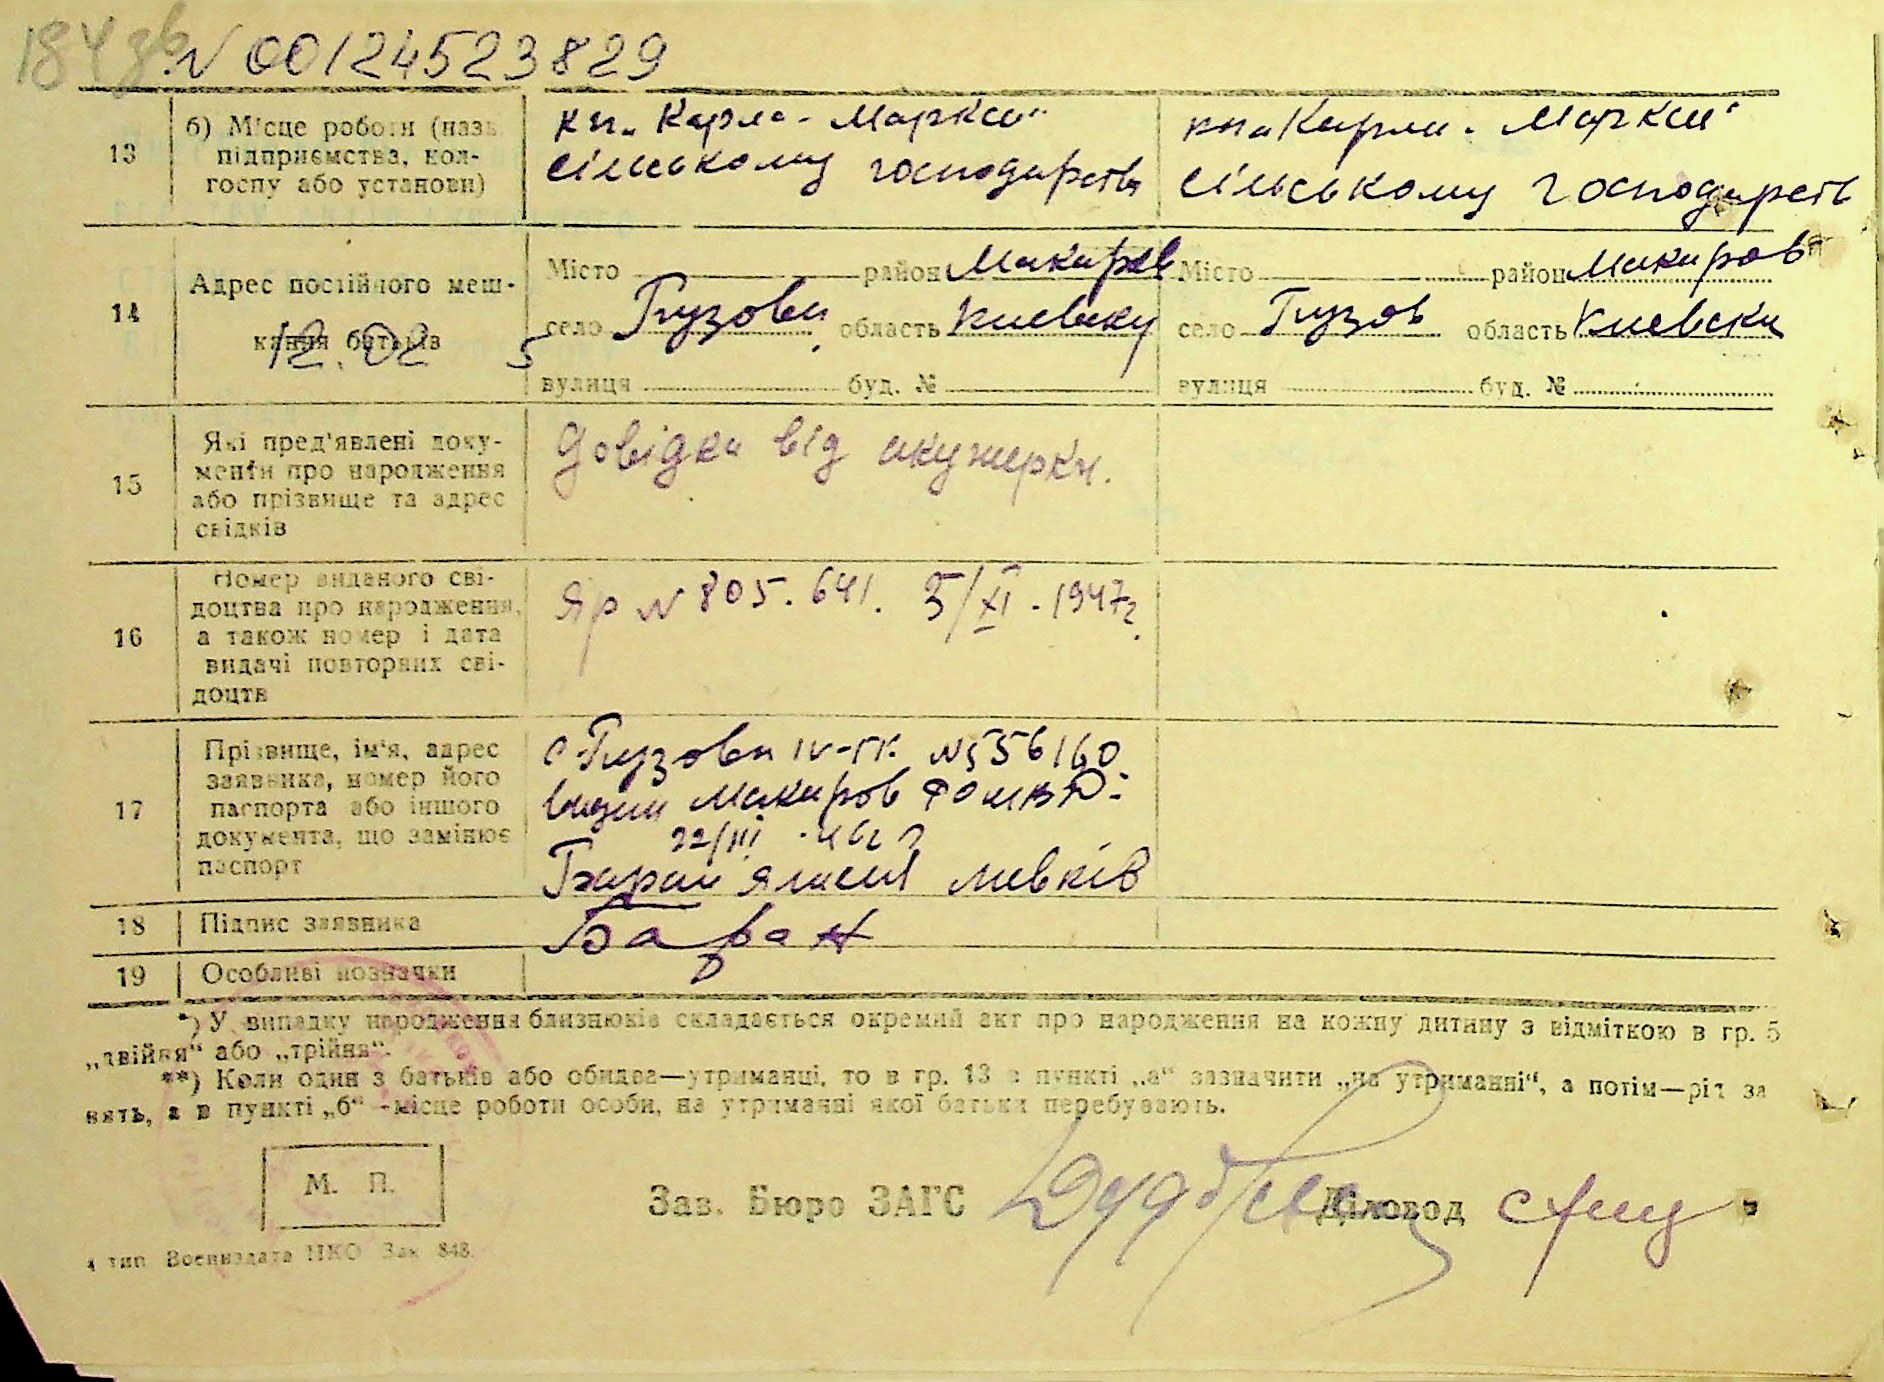 184 зв
N 00124523829
13 б) Місце роботи (назв. підприємства, кол-
госпу або установи)
кп. „Карла-Маркса“
сільському господарств
кп. „Карла-Маркса“
сільському господарств
14 Адрес постійного меш-
кання батьків
12.02 5
Місто район Макаров
село Гузовка область Киевску
вулиця буд. №
Місто район Макаров
село Гузов область Киевска
вулиця буд. №
15 Які пред'явлені доку-
менти про народження
або прізвище та адрес
свідків
Довідка від акушерки.
16 Номер виданого сві-
доцтва про народження,
а також номер і дата
видачі повторних сві-
доцтв
Яр N 805.641. 5/XI-1947г.
17 Прізвище, ім'я, адрес
заявника, номер його
паспорта або іншого
документа, що замінює
паспорт
с. IV-ГК. N 556160
Макаров РОМВД
22/III
Баран
18 Підпис заявника
Баран
19 Особливі позначки
*) У випадку народження близнюків складається окремий акт про народження на кожну дитину з відміткою в гр. 5
„двійня“ або „трійня“.
**) Коли один з батьків або обидва—утриманці, то в гр. 13 в пункті „а“ зазначити „на утриманні“, а потім—рід за
нять, а в пункті „б“ -місце роботи особи, на утриманні якої батьки перебувають.
М. П.
Зав. Бюро ЗАГС Діловод
4 тип Воениздата НКО Зак 848.